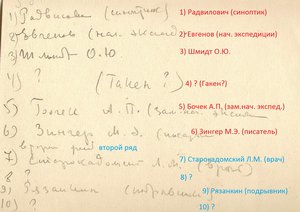 1) Радвилович (синоптик)
1) Радвилович (синоптик)
2) Евгенов (нач. экспед
2) Евгенов (нач. экспедиции)
3) Шмидт О.Ю.
3) Шмидт О.Ю.
4) ? (Гакен?)
4) ? (Гакен?)
5) А.П. (зам. нач.
5) Бочек А.П, (зам.нач. экспед.)
6) Зингер М.Э. (писат
6) Зингер М.Э. (писатель)
второй ряд
второй ряд
7) Старокадомский Л.М. (врач)
7) Старокадомский Л.М. (врач)
8) ?
8) ?
9) Рязанкин (подрывник)
9) Рязанкин (подрывник)
10) ?
10) ?